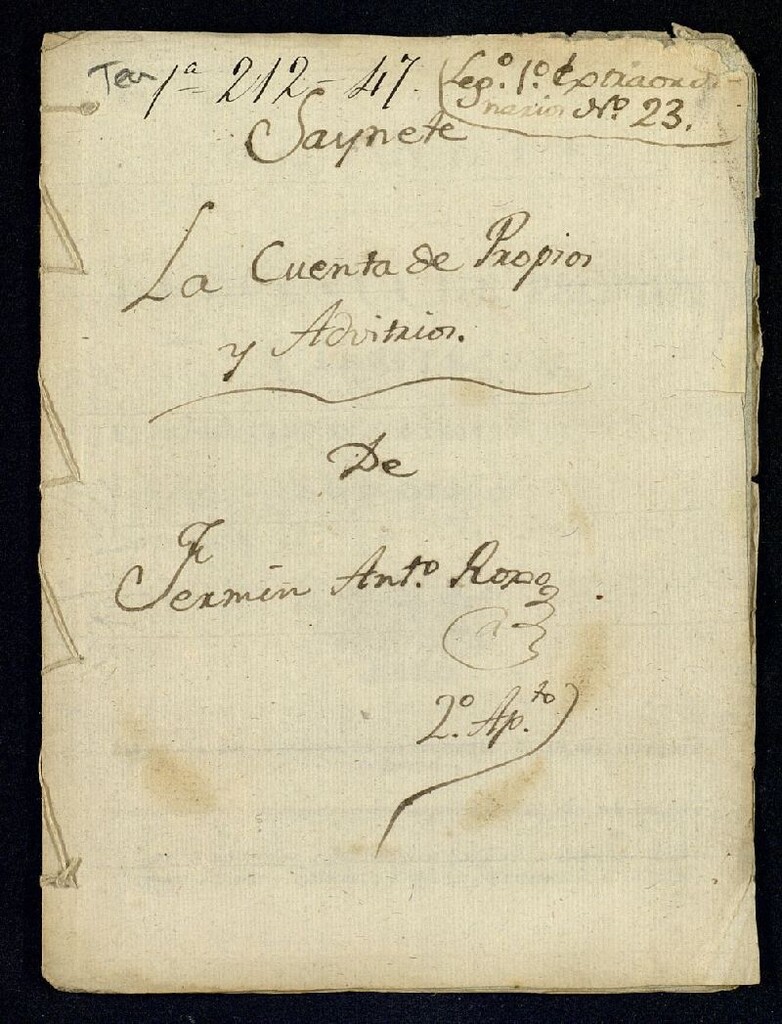 Tea 1ª 212-47.
Leg.º 1.º Extraordi-
narios Nº. 23.
Saynete
La Cuenta de Propios
y Advitrios.
De
Fermin Ant.º Roxo.
2.º Ap.to